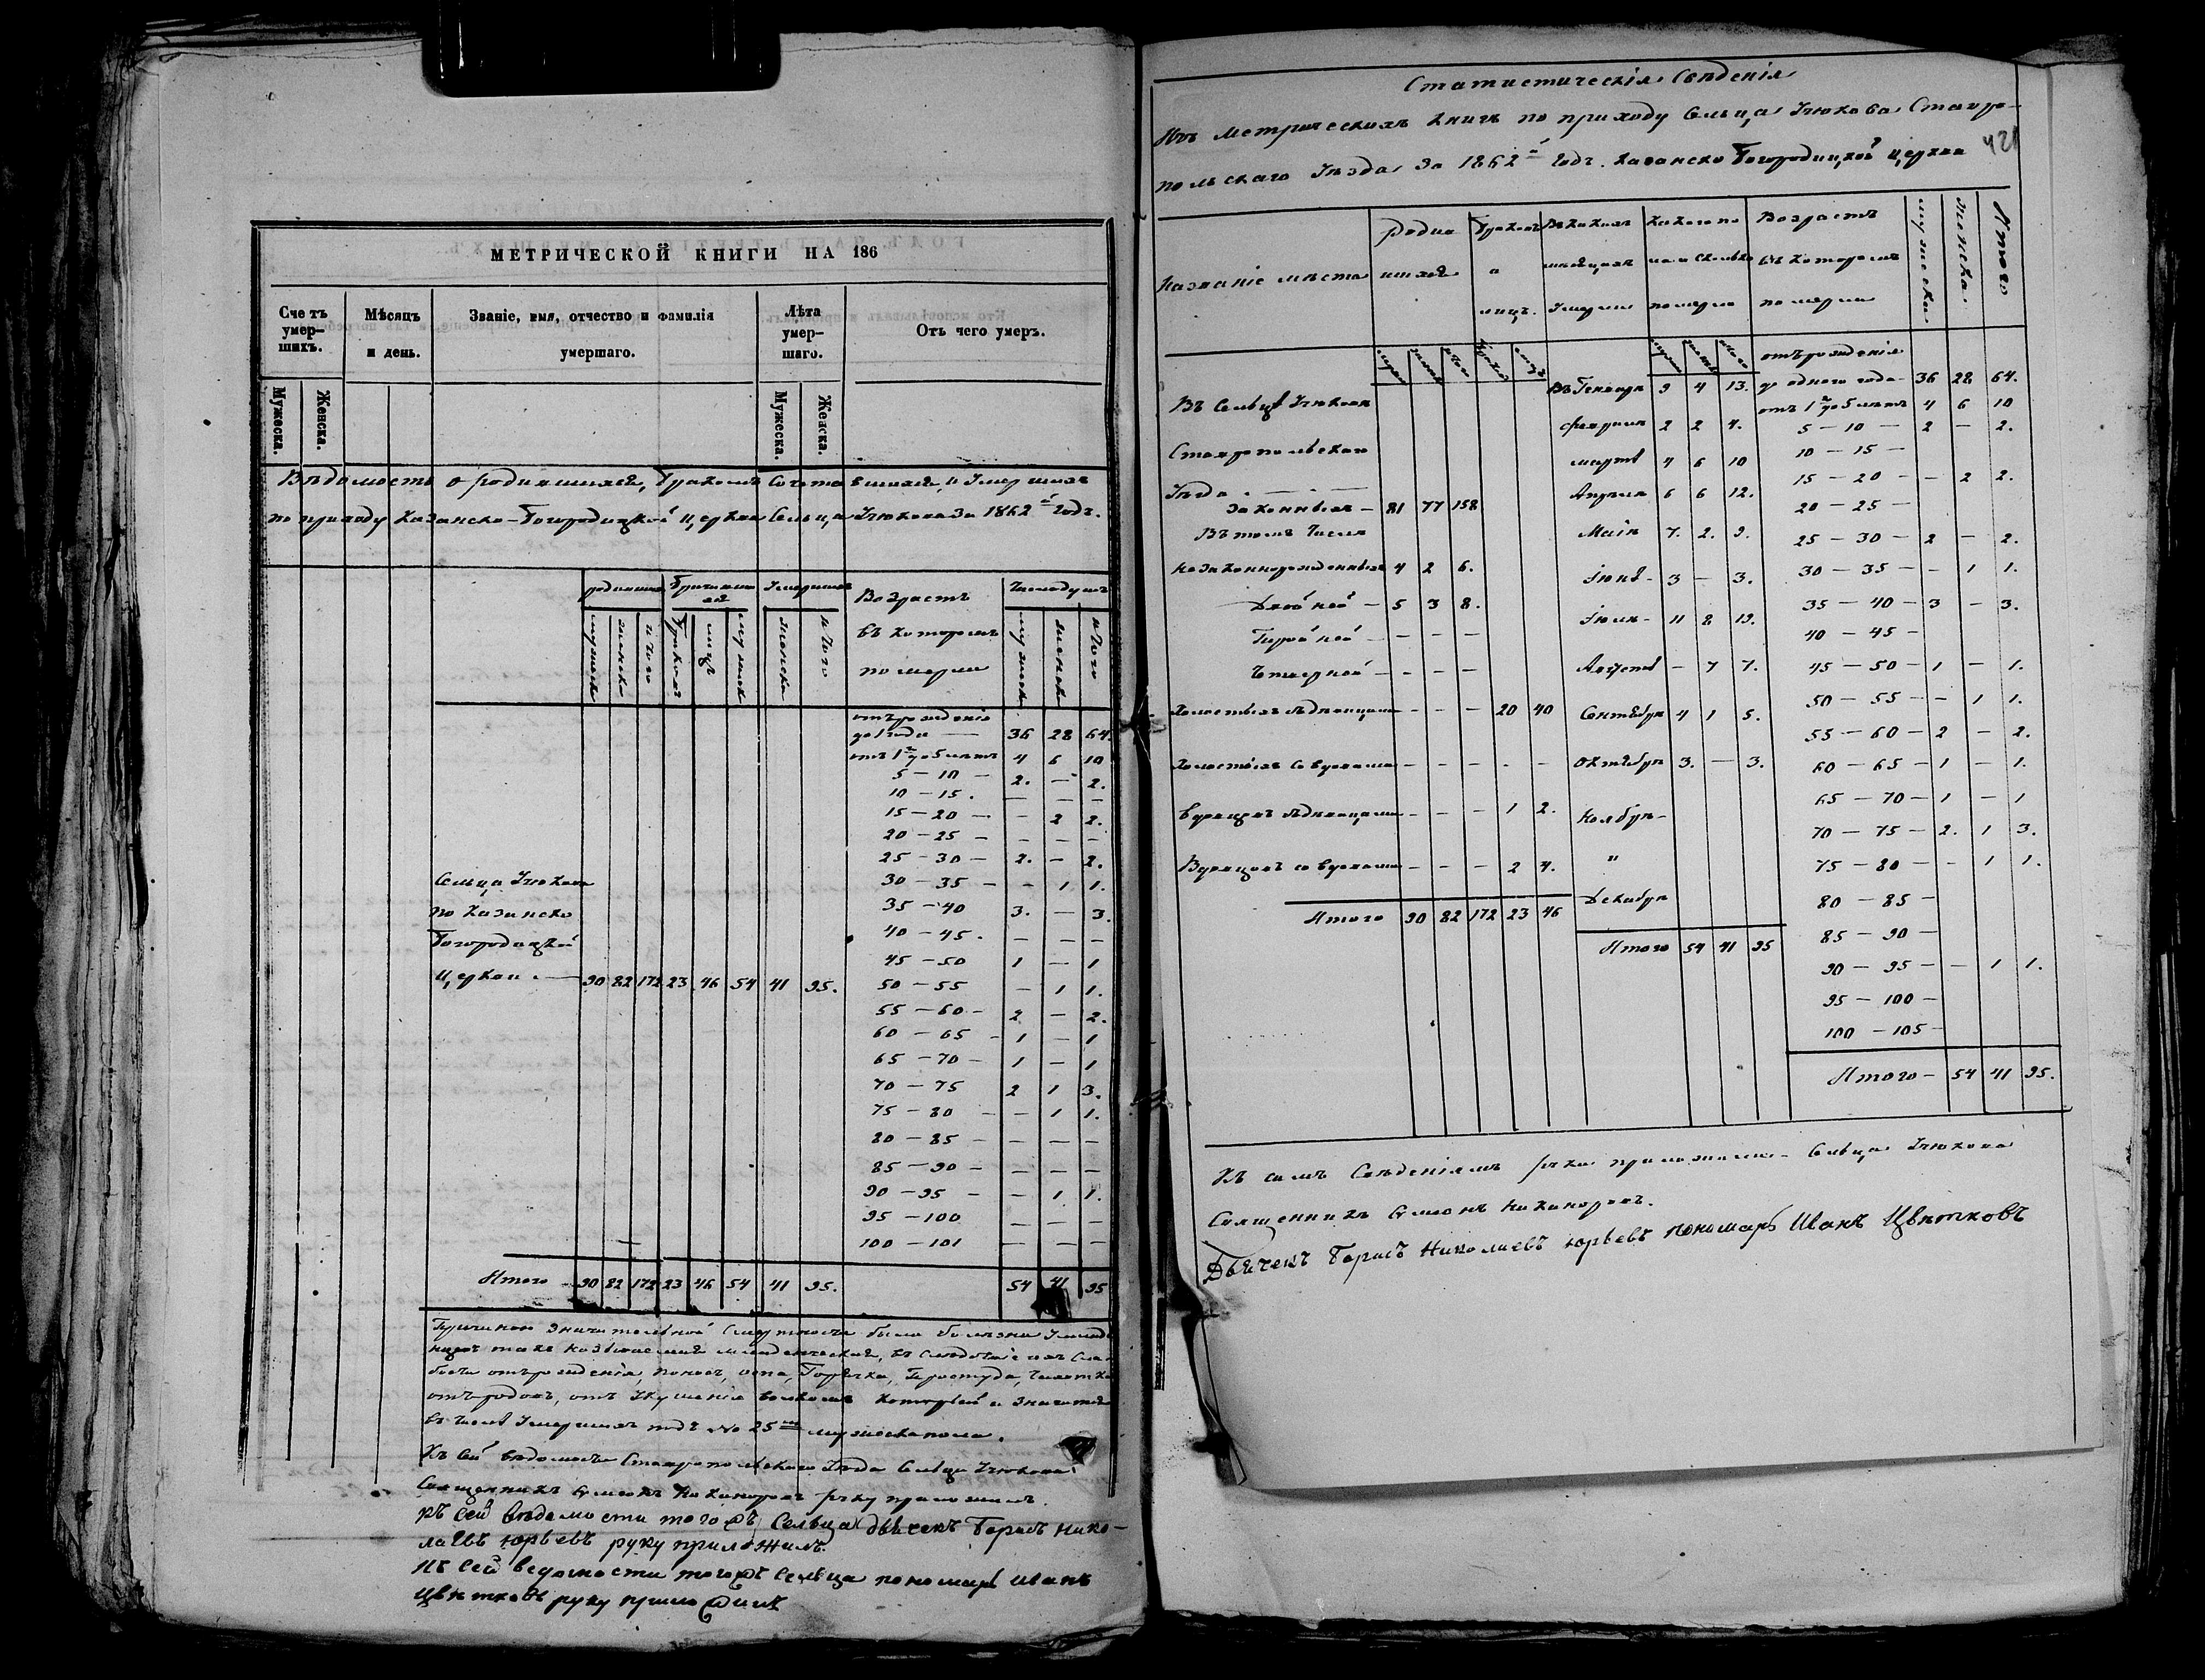 МЕТРИЧЕСКОЙ КНИГИ НА 186
Счетъ умер-шихъ. Мѣсяцъ и день. Званіе, имя, отчество и фамилія умершаго. Лѣта умер-шаго. Отъ чего умеръ.
Мужеска. Женска. Мужеска. Женска.
Вѣдомость о родившихся, бракомъ сочетавшихся, и умершихъ
по приходу Казанско-Богородицкой церкви сельца Учюкова за 1862й годъ.
родилось умершихъ Возрастъ въ которомъ померли Число душъ
мужеска женска итого браковъ лицъ мужеска женска итого мужеска женска итого
отъ рожденія
до 1 года — 36 28 64.
отъ 1го до 5 лѣтъ 4 6 10
5 — 10 — 2. — 2.
10 — 15. — — —
15 — 20 — — 2 2.
20 — 25 — — — —
25 — 30 — 2. — 2.
30 — 35 — — 1 1.
35 — 40 3. — 3.
40 — 45. — — —
45 — 50 1 — 1
50 — 55 — 1 1.
55 — 60 — 2 — 2.
60 — 65 — 1 — 1
65 — 70 — 1 — 1
70 — 75 2 1 3.
75 — 80 — — 1 1.
80 — 85 — — — —
85 — 90 — — — —
90 — 95 — — 1 1.
95 — 100 — — —
100 — 101 — — —
Сельца Учюкова
по Казанско
Богородицкой
церкви. — 90 82 172 23 46 54 41 95.
Итого — 90 82 172 23 46 54 41 95. 54 41 95
Причиною значительной смертности были болѣзни
отъ рожденія, поносъ, оспа, горячка, простуда, чахотка
отъ родовъ, отъ укушенія волкомъ который и значится
въ числѣ умершихъ подъ № 25мъ мужеска пола.
Къ сей вѣдомости Ставропольскаго уѣзда сельца Учюкова
Священникъ Симеонъ Никаноровъ руку приложилъ.
Къ сей вѣдомости того жъ сельца дьячекъ Борисъ Нико-
лаевъ Юрьевъ руку приложилъ.
Къ сей ведомости того жъ сельца пономарь Иванъ
Цвѣтковъ руку приложилъ
Статистическія Свѣденія
Изъ метрическихъ книгъ по приходу сельца Учюкова Ставро-
польскаго уѣзда за 1862й годъ. Казанско Богородицкой церкви
421
Названіе мѣста родившихся браковъ а лицъ. Въ какихъ мѣсяцахъ умерли Какого пола и сколько померло Возрастъ въ которомъ померли мужеска женска Итого
Въ сельцѣ Учюковѣ
Ставропольскаго
уѣзда. —
законныхъ — 81 77 158
Въ томъ числѣ
незаконнорожденныхъ 4 2 6.
Двойней — 5 3 8.
Тройней — — — —
Четверней — — — —
Холостыхъ съ дѣвицами — — — 20 40
Холостыхъ со вдовами — — — — —
Вдовцовъ съ дѣвицами — — — 1 2.
Вдовцовъ со вдовами — — — 2 4.
Итого 90 82 172 23 46
Въ Генварѣ 9 4 13.
Февралѣ 2 2 4.
Мартѣ 4 6 10
Апрѣлѣ 6 6 12.
Маіѣ 7. 2. 9.
Іюнѣ — 3 — 3.
Іюлѣ — 11 8 19.
Августѣ — 7 7.
Сентябрѣ 4 1 5.
Октябрѣ 3. — 3.
Ноябрѣ —
"
Декабрѣ
Итого 54 41 95
отъ рожденія
до одного года — 36 28 64.
отъ 1го до 5 лѣтъ 4 6 10
5 — 10 — 2 — 2.
10 — 15 —
15 — 20 — — 2 2.
20 — 25 —
25 — 30 — 2 — 2.
30 — 35 — — 1 1.
35 — 40 — 3 — 3.
40 — 45 —
45 — 50 — 1 — 1.
50 — 55 — — 1 1.
55 — 60 — 2 — 2.
60 — 65 — 1 — 1.
65 — 70 — 1 — 1
70 — 75 — 2. 1 3.
75 — 80 — — 1 1.
80 — 85 —
85 — 90 —
90 — 95 — — 1 1.
95 — 100 —
100 — 105 —
Итого — 54 41 95.
Къ симъ свѣденіямъ руки приложили. Сельца Учюкова
Священникъ Симеонъ Никаноровъ.
Дьячекъ Борисъ Николаевъ Юрьевъ пономарь Иванъ Цвѣтковъ